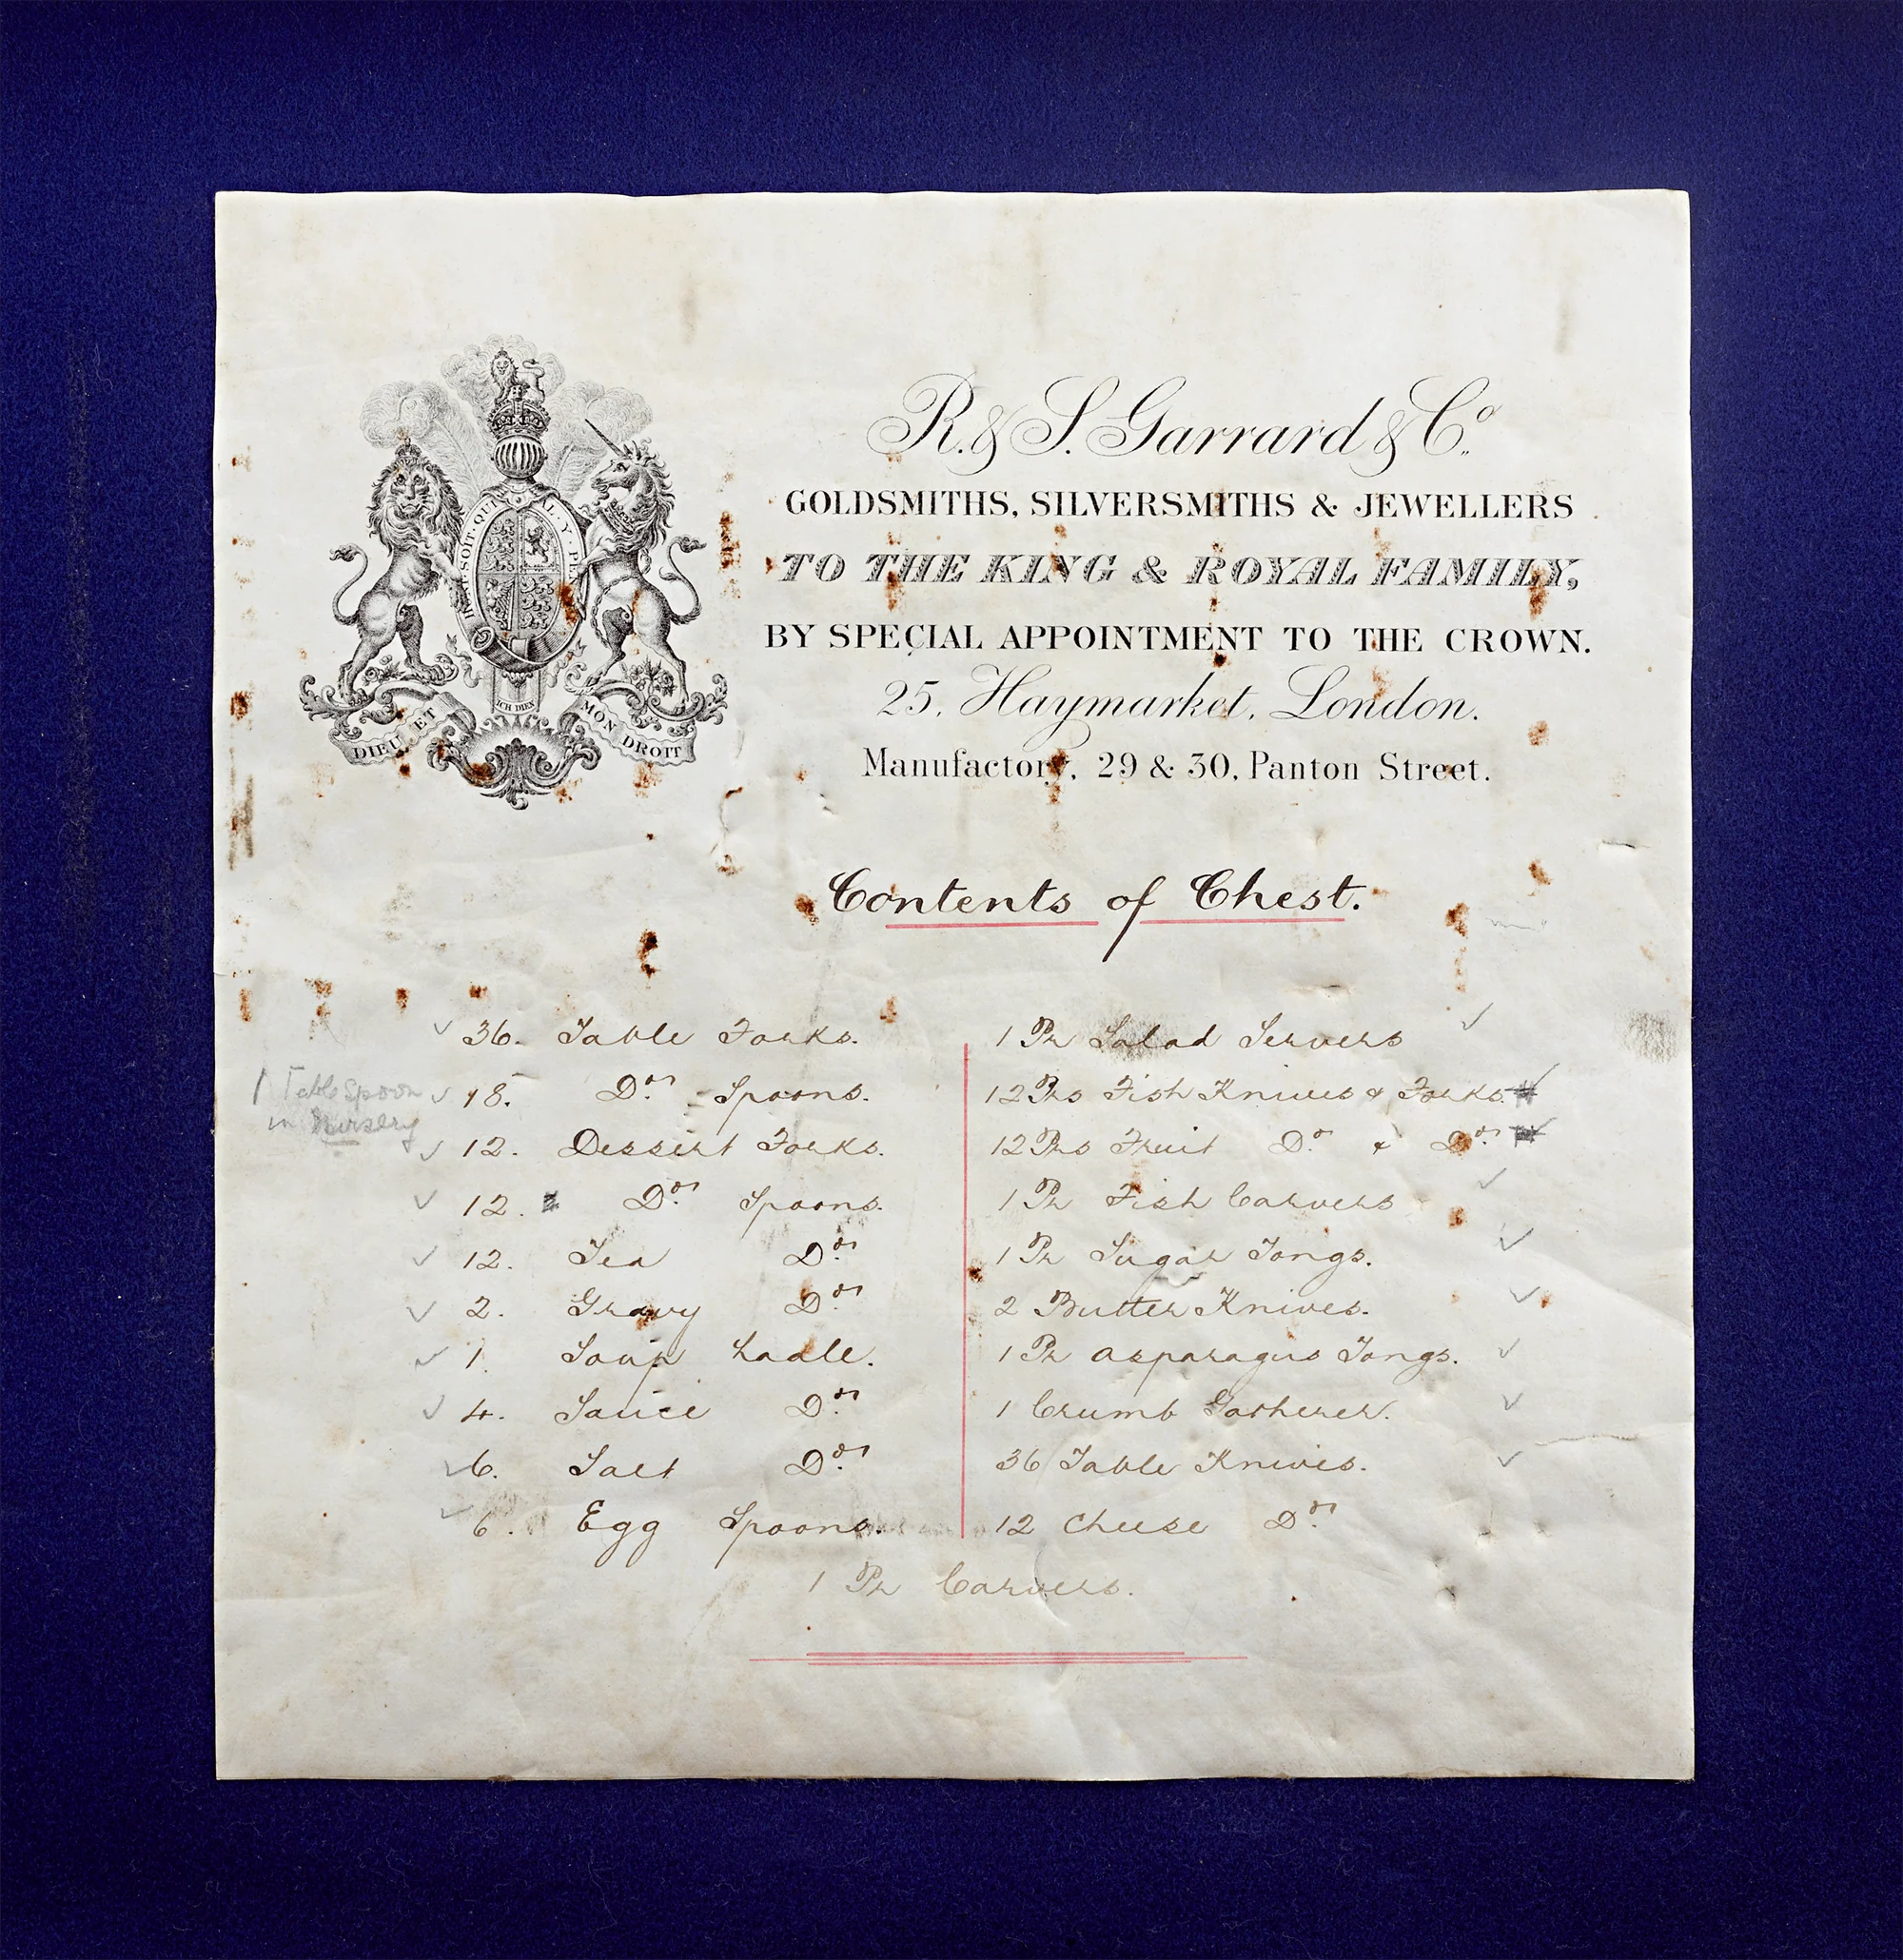 R. & S. Garrard & Co.
GOLDSMITHS, SILVERSMITHS & JEWELLERS
TO THE KING & ROYAL FAMILY,
BY SPECIAL APPOINTMENT TO THE CROWN.
25, Haymarket, London.
Manufactory, 29 & 30, Panton Street.
SOIT · QUI · AL · Y · PE
ICH DIEN
DIEU ET MON DROIT
Contents of Chest.
36. Table Forks.
1 Table Spoon
in Nursery
18. Do. Spoons.
12. Dessert Forks.
12. Do. Spoons.
12. Tea Do.
2. Gravy Do.
1. Soup Ladle.
4. Sauce Do.
6. Salt Do.
6. Egg Spoons.
1 Pr Salad Servers
12 Prs Fish Knives & Forks.
12 Prs Fruit Do. & Do.
1 Pr Fish Carvers
1 Pr Sugar Tongs.
2 Butter Knives.
1 Pr Asparagus Tongs.
1 Crumb Gatherer.
36 Table Knives.
12 Cheese Do.
1 Pr Carvers.